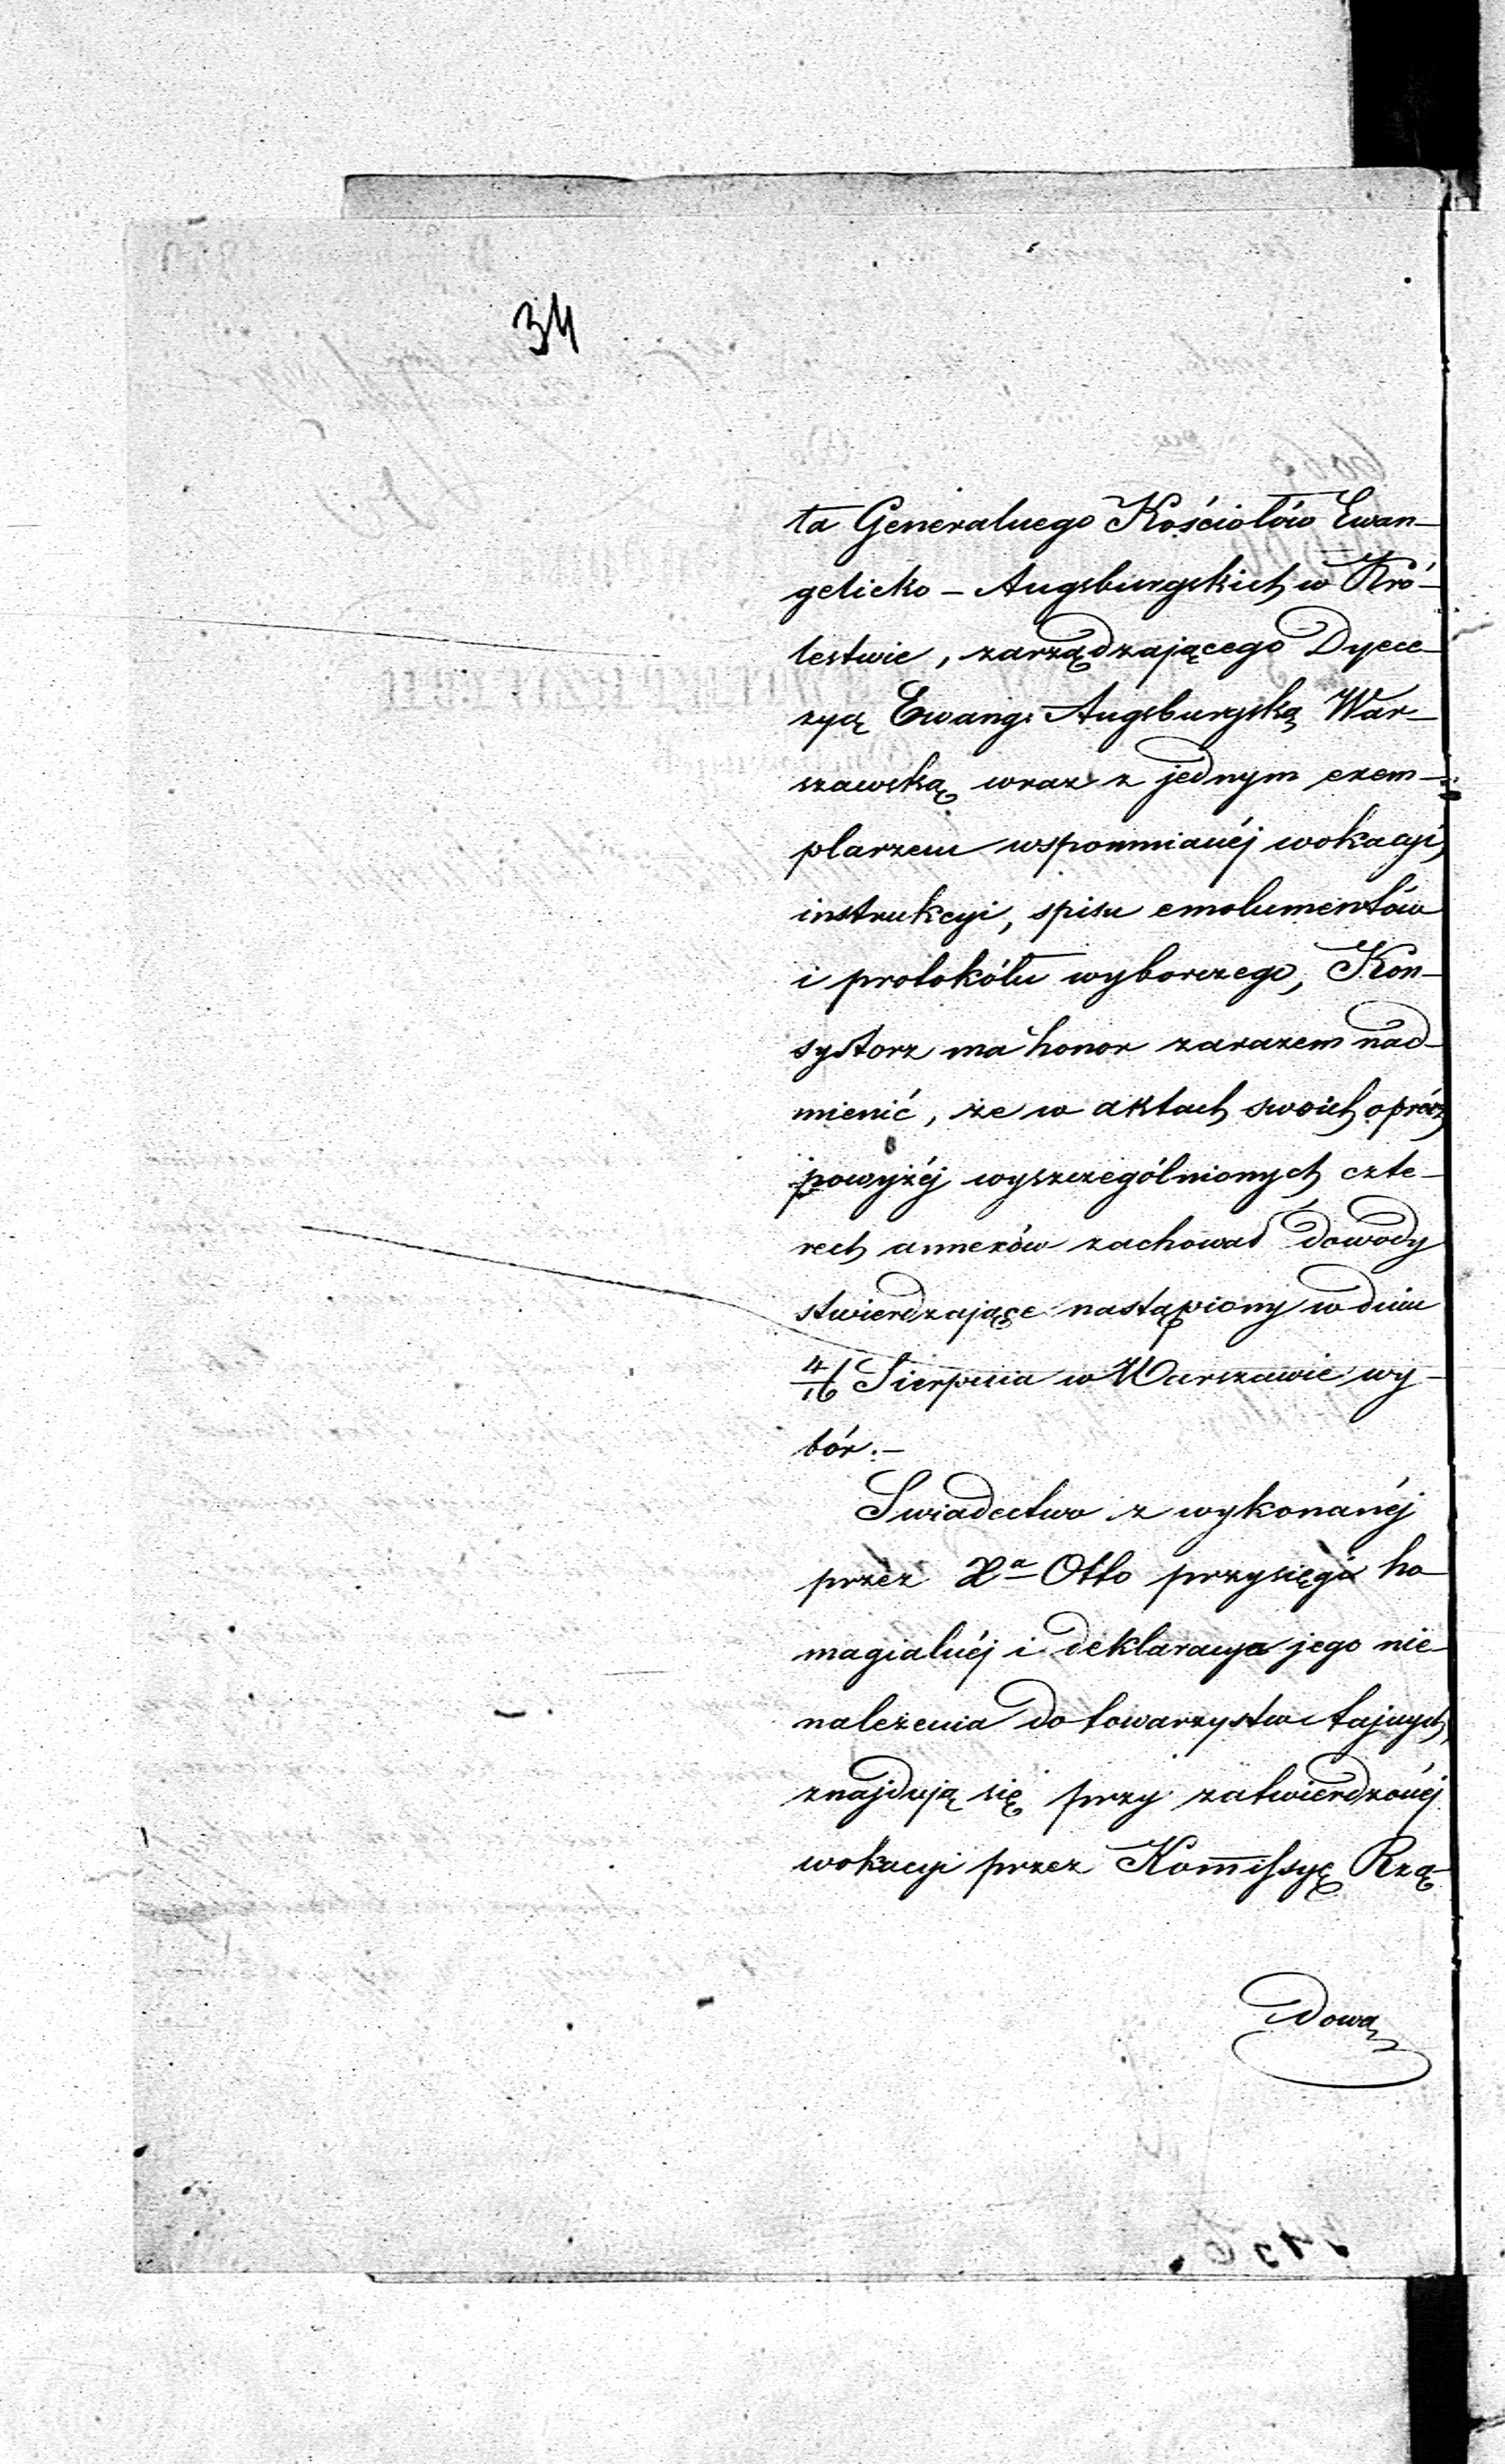 34
ta Generalnego Kościołów Ewan-
gelicko - Augsburgskich w Kró-
lestwie, zarządzającego Dyece-
zyą Ewang: Augsburgską War-
szawską wraz z jednym exem-
plarzem wspomnianéj wokacyi,
instrukcyi, spisu emolumentów
i protokółu wyborczego, Kon-
systorz ma honor zarazem nad-
mienić, że w aktach swoich oprócz
powyżéj wyszczególnionych czte-
rech annexów zachował dowody
stwierdzające nastąpiony w dniu
4/16 Sierpnia w Warszawie wy-
bór.-
Swiadectwo z wykonanéj
przez Xa Otto przysięgi ho-
magialnéj i deklaracya jego nie-
należenia do towarzystw tajnych,
znajdują się przy zatwierdzonéj
wokacyi przez Kommissyę Rzą-
dowa